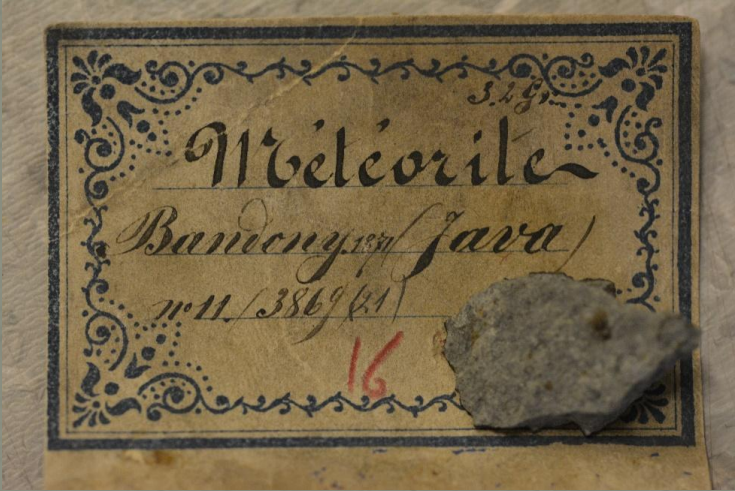 3.2 Gr
Météorite
Bandony 1871 (Java)
n° 11 / 3869 (21)
16